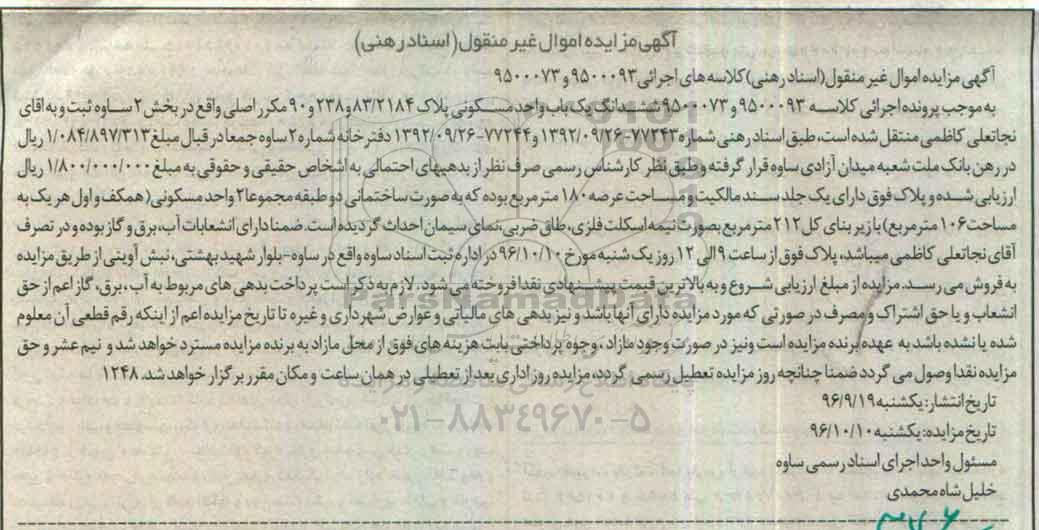 آگهی مزایده اموال غیر منقول (اسناد رهنی)
آگهی مزایده اموال غیر منقول(اسناد رهنی)کلاسه های اجرائی۹۵۰۰۰۹۳ و ۹۵۰۰۰۷۳
به موجب پرونده اجرائی کلاسه ۹۵۰۰۰۹۳ و ۹۵۰۰۰۷۳ ششدانگ یک باب واحد مسکونی پلاک ۸۳/۲۱۸۴ و۲۳۸ و ۹۰ مکرر اصلی واقع در بخش ۲ ساوه ثبت و به اقای
نجاتعلی کاظمی منتقل شده است، طبق اسناد رهنی شماره ۷۷۲۴۳-۱۳۹۲/۰۹/۲۶ و ۷۷۲۴۴-۱۳۹۲/۰۹/۲۶ دفتر خانه شماره ۲ ساوه جمعا در قبال مبلغ ۱/۰۸۴/۸۹۷/۳۱۳ ریال
در رهن بانک ملت شعبه میدان آزادی ساوه قرار گرفته و طبق نظر کارشناس رسمی صرف نظر از بدهیهای احتمالی به اشخاص حقیقی و حقوقی به مبلغ ۱/۸۰۰/۰۰۰/۰۰۰ ریال
ارزیابی شده و پلاک فوق دارای یک جلد سند مالکیت و مساحت عرصه ۱۸۰ متر مربع بوده که به صورت ساختمانی دو طبقه مجموعا ۲ واحد مسکونی( همکف و اول هر یک به
مساحت ۱۰۶ متر مربع) با زیر بنای کل ۲۱۲ مترمربع بصورت نیمه اسکلت فلزی، طاق ضربی ،نمای سیمان احداث گردیده است. ضمنا دارای انشعابات آب، برق و گاز بوده و در تصرف
آقای نجاتعلی کاظمی میباشد، پلاک فوق از ساعت ۹ الی ۱۲ روز یک شنبه مورخ ۹۶/۱۰/۱۰ در اداره ثبت اسناد ساوه واقع در ساوه-بلوار شهید بهشتی، نبش آوینی از طریق مزایده
به فروش می رسد. مزایده از مبلغ ارزیابی شروع و به بالاترین قیمت پیشنهادی نقدا فروخته می شود، لازم به ذکر است پرداخت بدهی های مربوط به آب، برق، گاز اعم از حق
انشعاب و یا حق اشتراک و مصرف در صورتی که مورد مزایده دارای آنها باشد و نیز بدهی های مالیاتی و عوارض شهرداری و غیره تا تاریخ مزایده اعم از اینکه رقم قطعی آن معلوم
شده یا نشده باشد به عهده برنده مزایده است ونیز در صورت وجود مازاد ، وجوه پرداختی بابت هزینه های فوق از محل مازاد به برنده مزایده مسترد خواهد شد و نیم عشر و حق
مزایده نقدا وصول می گردد ضمنا چنانچه روز مزایده تعطیل رسمی گردد، مزایده روز اداری بعد از تعطیلی در همان ساعت و مکان مقرر برگزار خواهد شد. ۱۲۴۸
تاریخ انتشار: یکشنبه ۹۶/۹/۱۹
تاریخ مزایده: یکشنبه ۹۶/۱۰/۱۰
مسئول واحد اجرای اسناد رسمی ساوه
خلیل شاه محمدی
ParsNamadData
۰۲۱-۸۸۳۴۹۶۷۰-۵